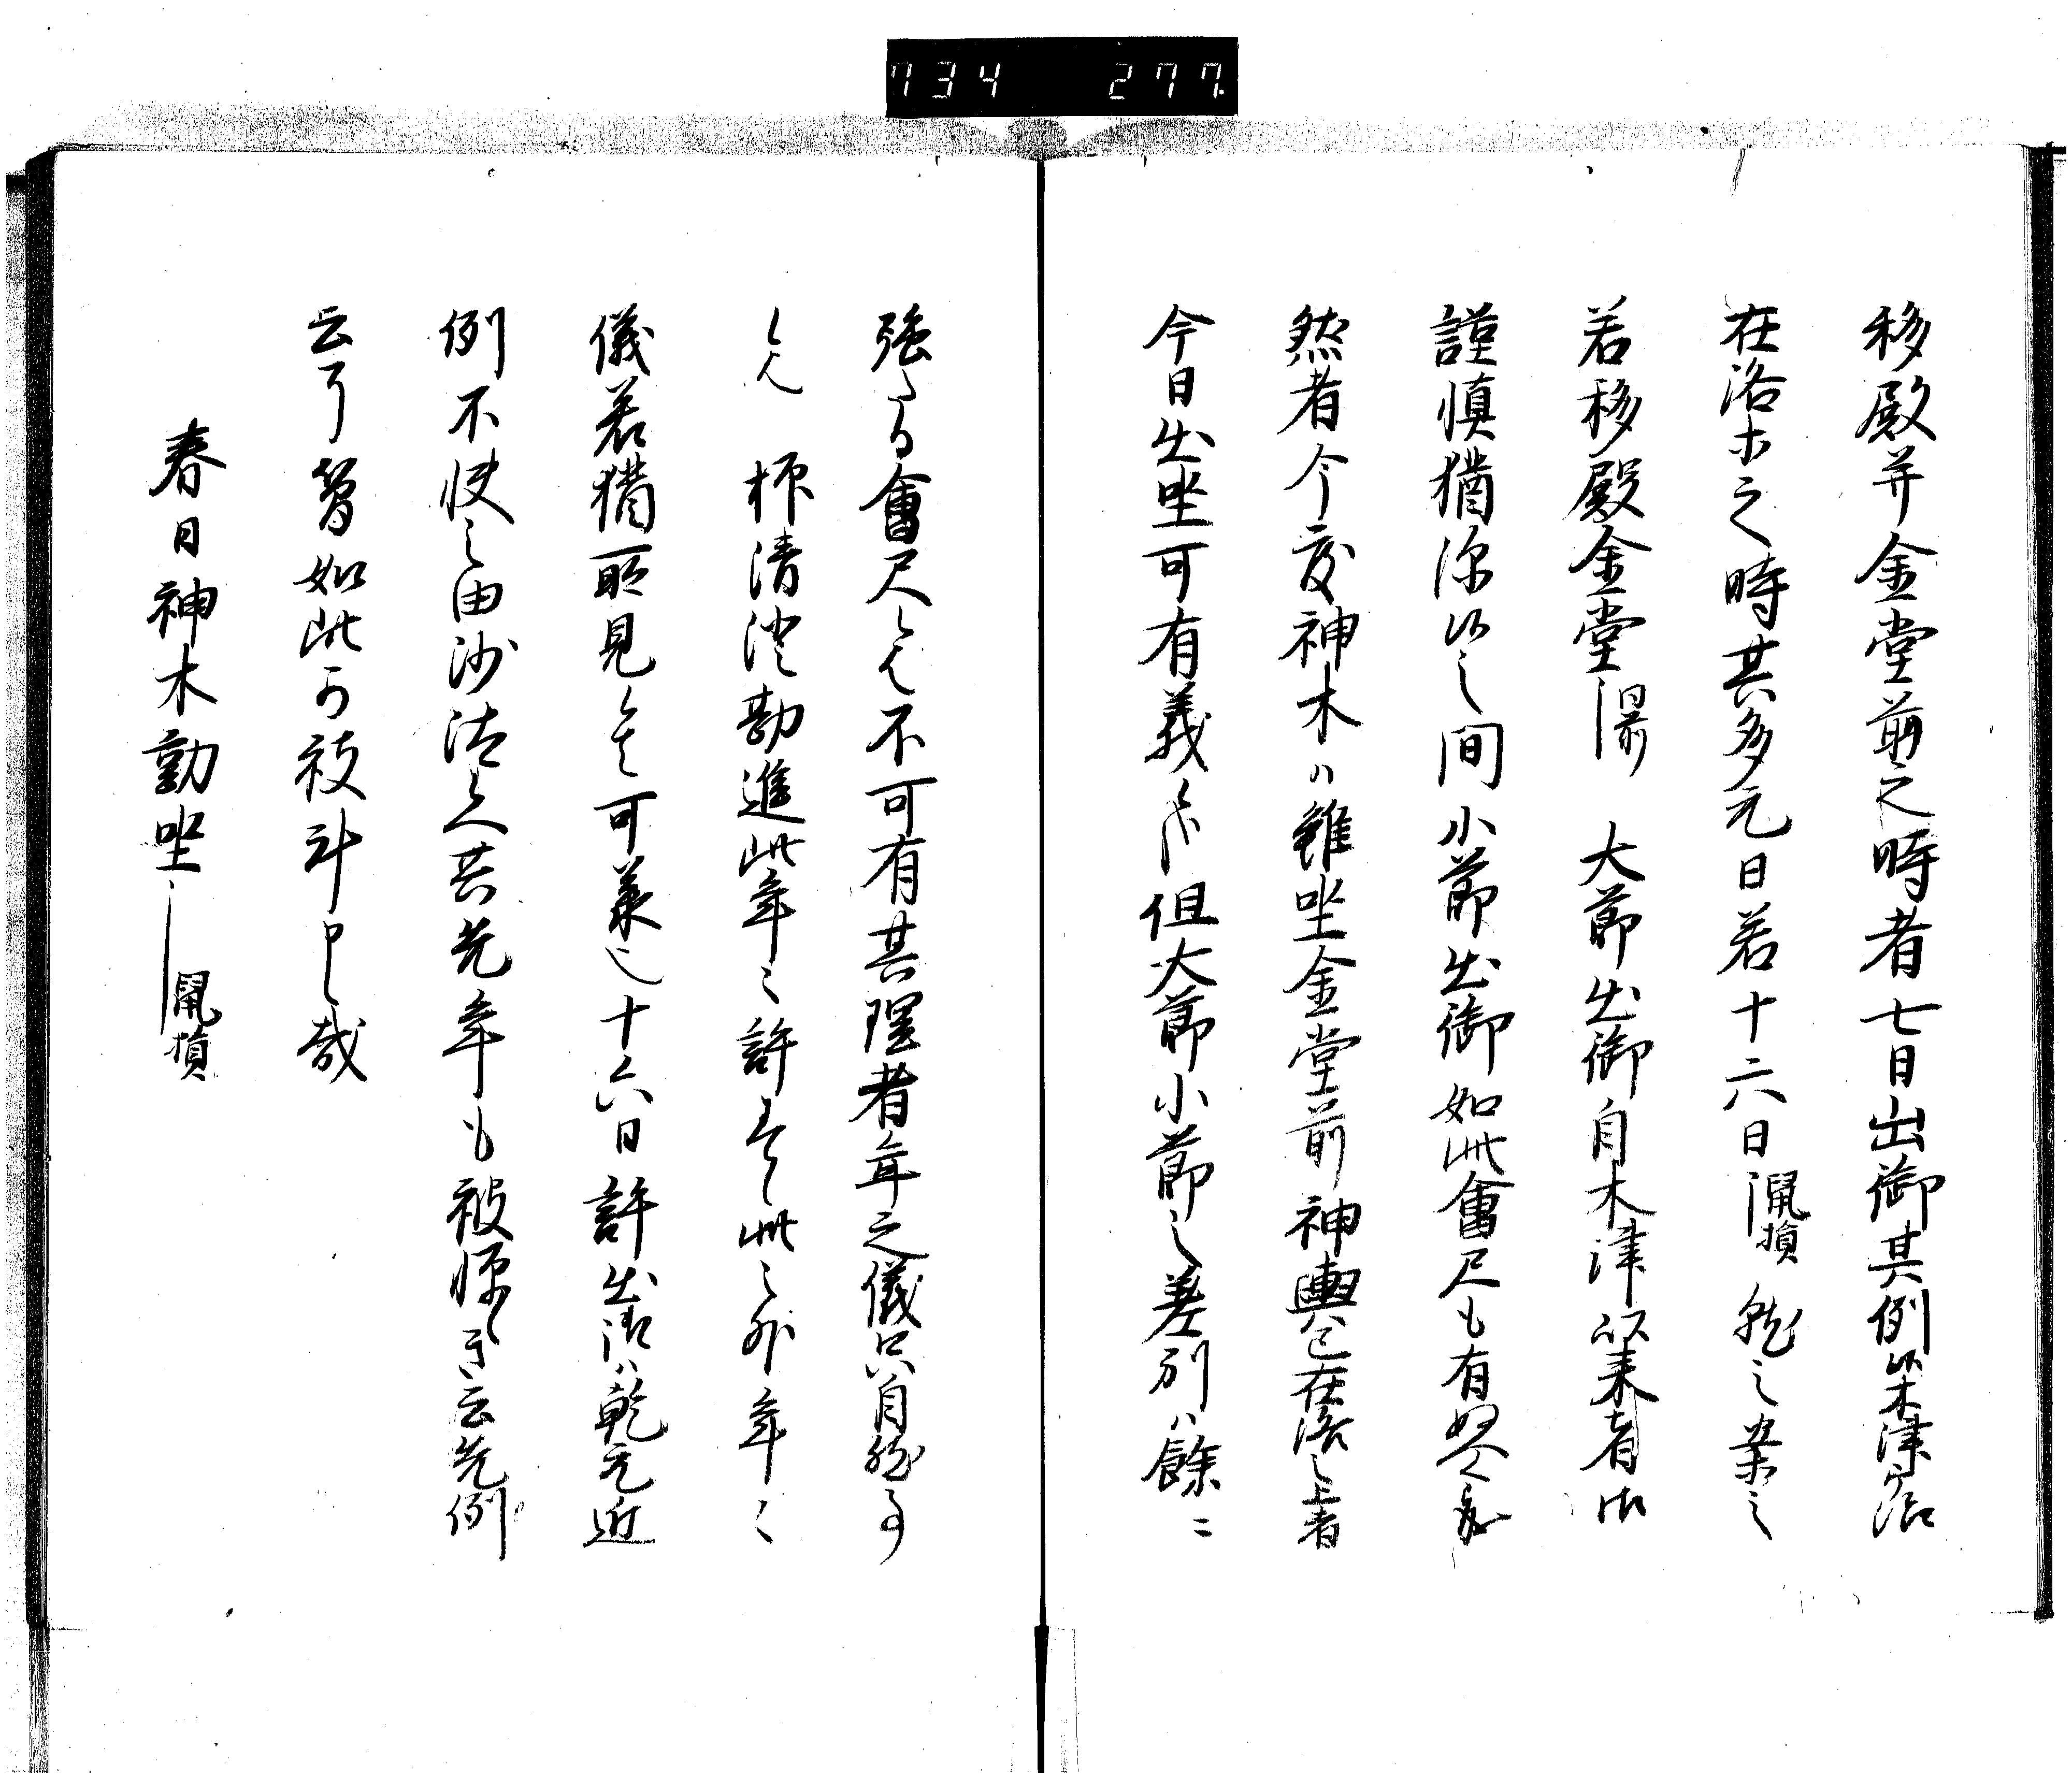 734 277
移殿并金堂前之時者七日出御其例於木津宿
在洛ホ之時其多元日若十六日鼠損然之案之
若移殿金堂 大節出御自木津以来者御
謹慎猶深候之間小節出御如此會尺も有
然者今度神木ハ雖坐金堂前神輿已在洛之上者
今日出坐可有義歟但大節小節之差別ハ餘ニ
強たる會尺也不可有其理者年之儀只自然事
也 抑清澄勘進此年々許者此之外年々
儀若猶所見候者可美也十六日許出御ハ乾元近
例不快之由沙汰之共先年も被 云先例
云了 如此可被計申哉
春日神木動坐 鼠損